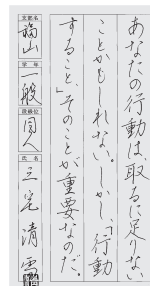 あなたの行動は、取るに足りない
ことかもしれない。しかし、「行動
すること」、そのことが重要なのだ。
支部名
福山
学年
一般
段級位
同人
氏名
三宅清雲